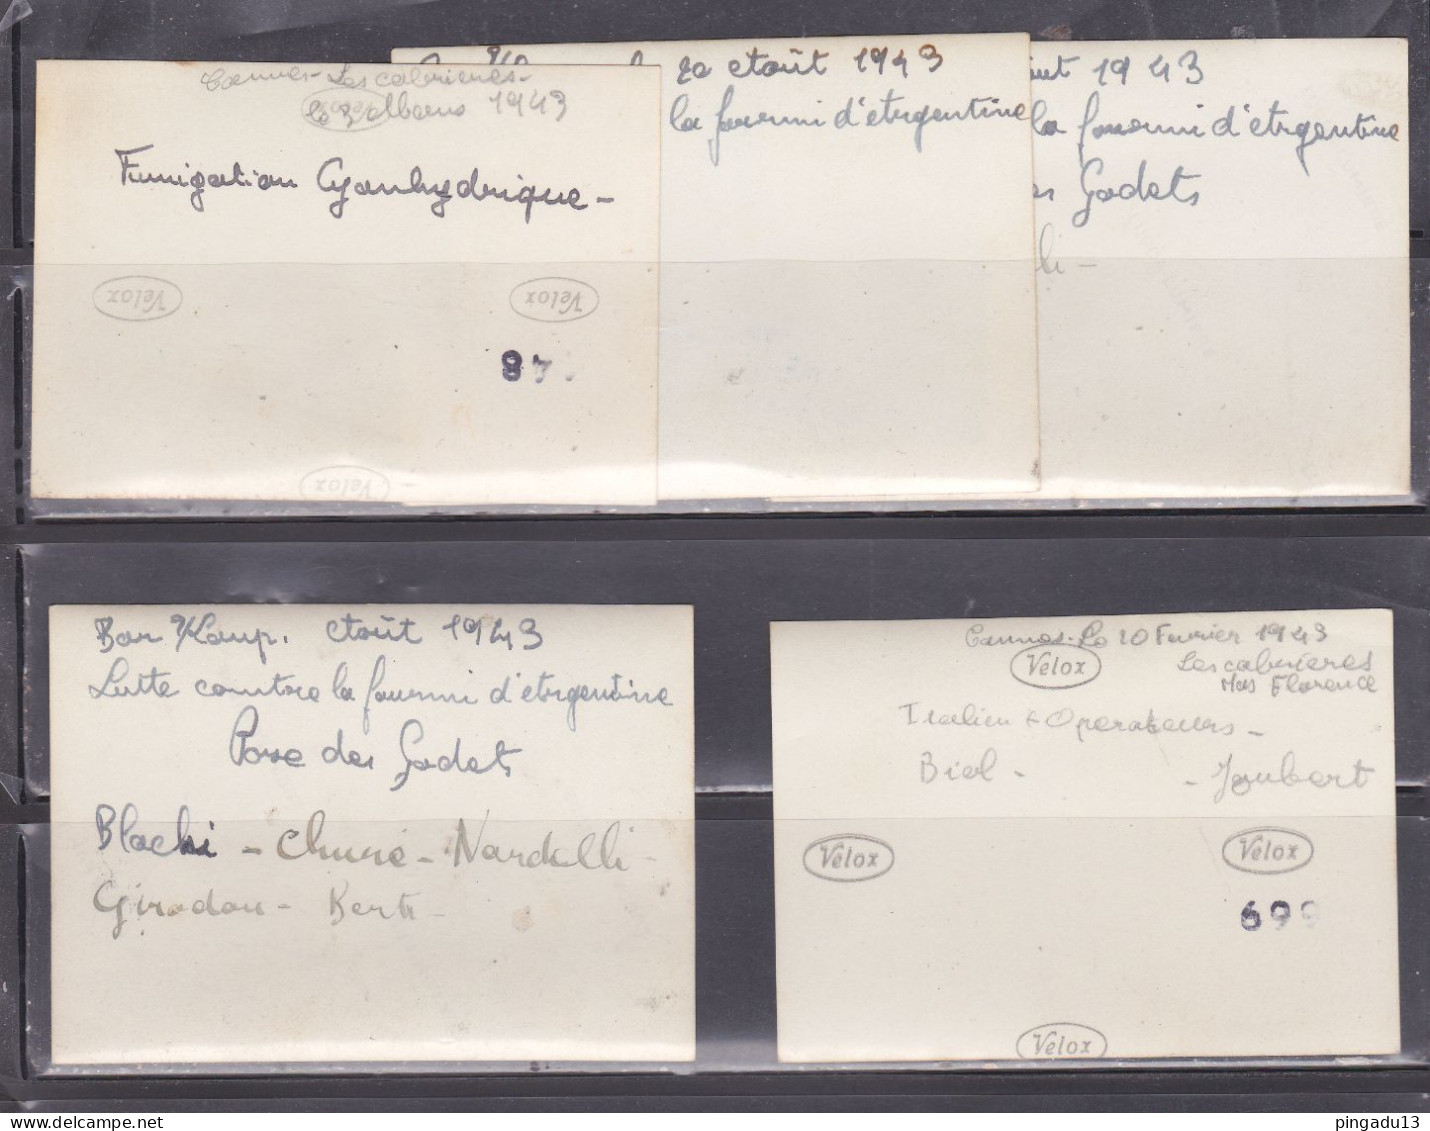 Cannes - Les cabrieres -
le 3 Mars 1943
Fumigation Cyanhydrique -
Velox
Velox
Velox
Velox
48
20 Août 1943
la fourmi d'Argentine
1943
la fourmi d'Argentine
Godets
li -
Août 1943
Lutte contre la fourmi d'Argentine
Pose des Godets
Blachi - Churé - Nardelli -
Girodou - Berti -
Cannes. Le 20 Fevrier 1943
Velox
Les cabrieres
Mas Florence
Operateurs -
Biol - - Joubert
Velox
Velox
699
Velox
pingadu13